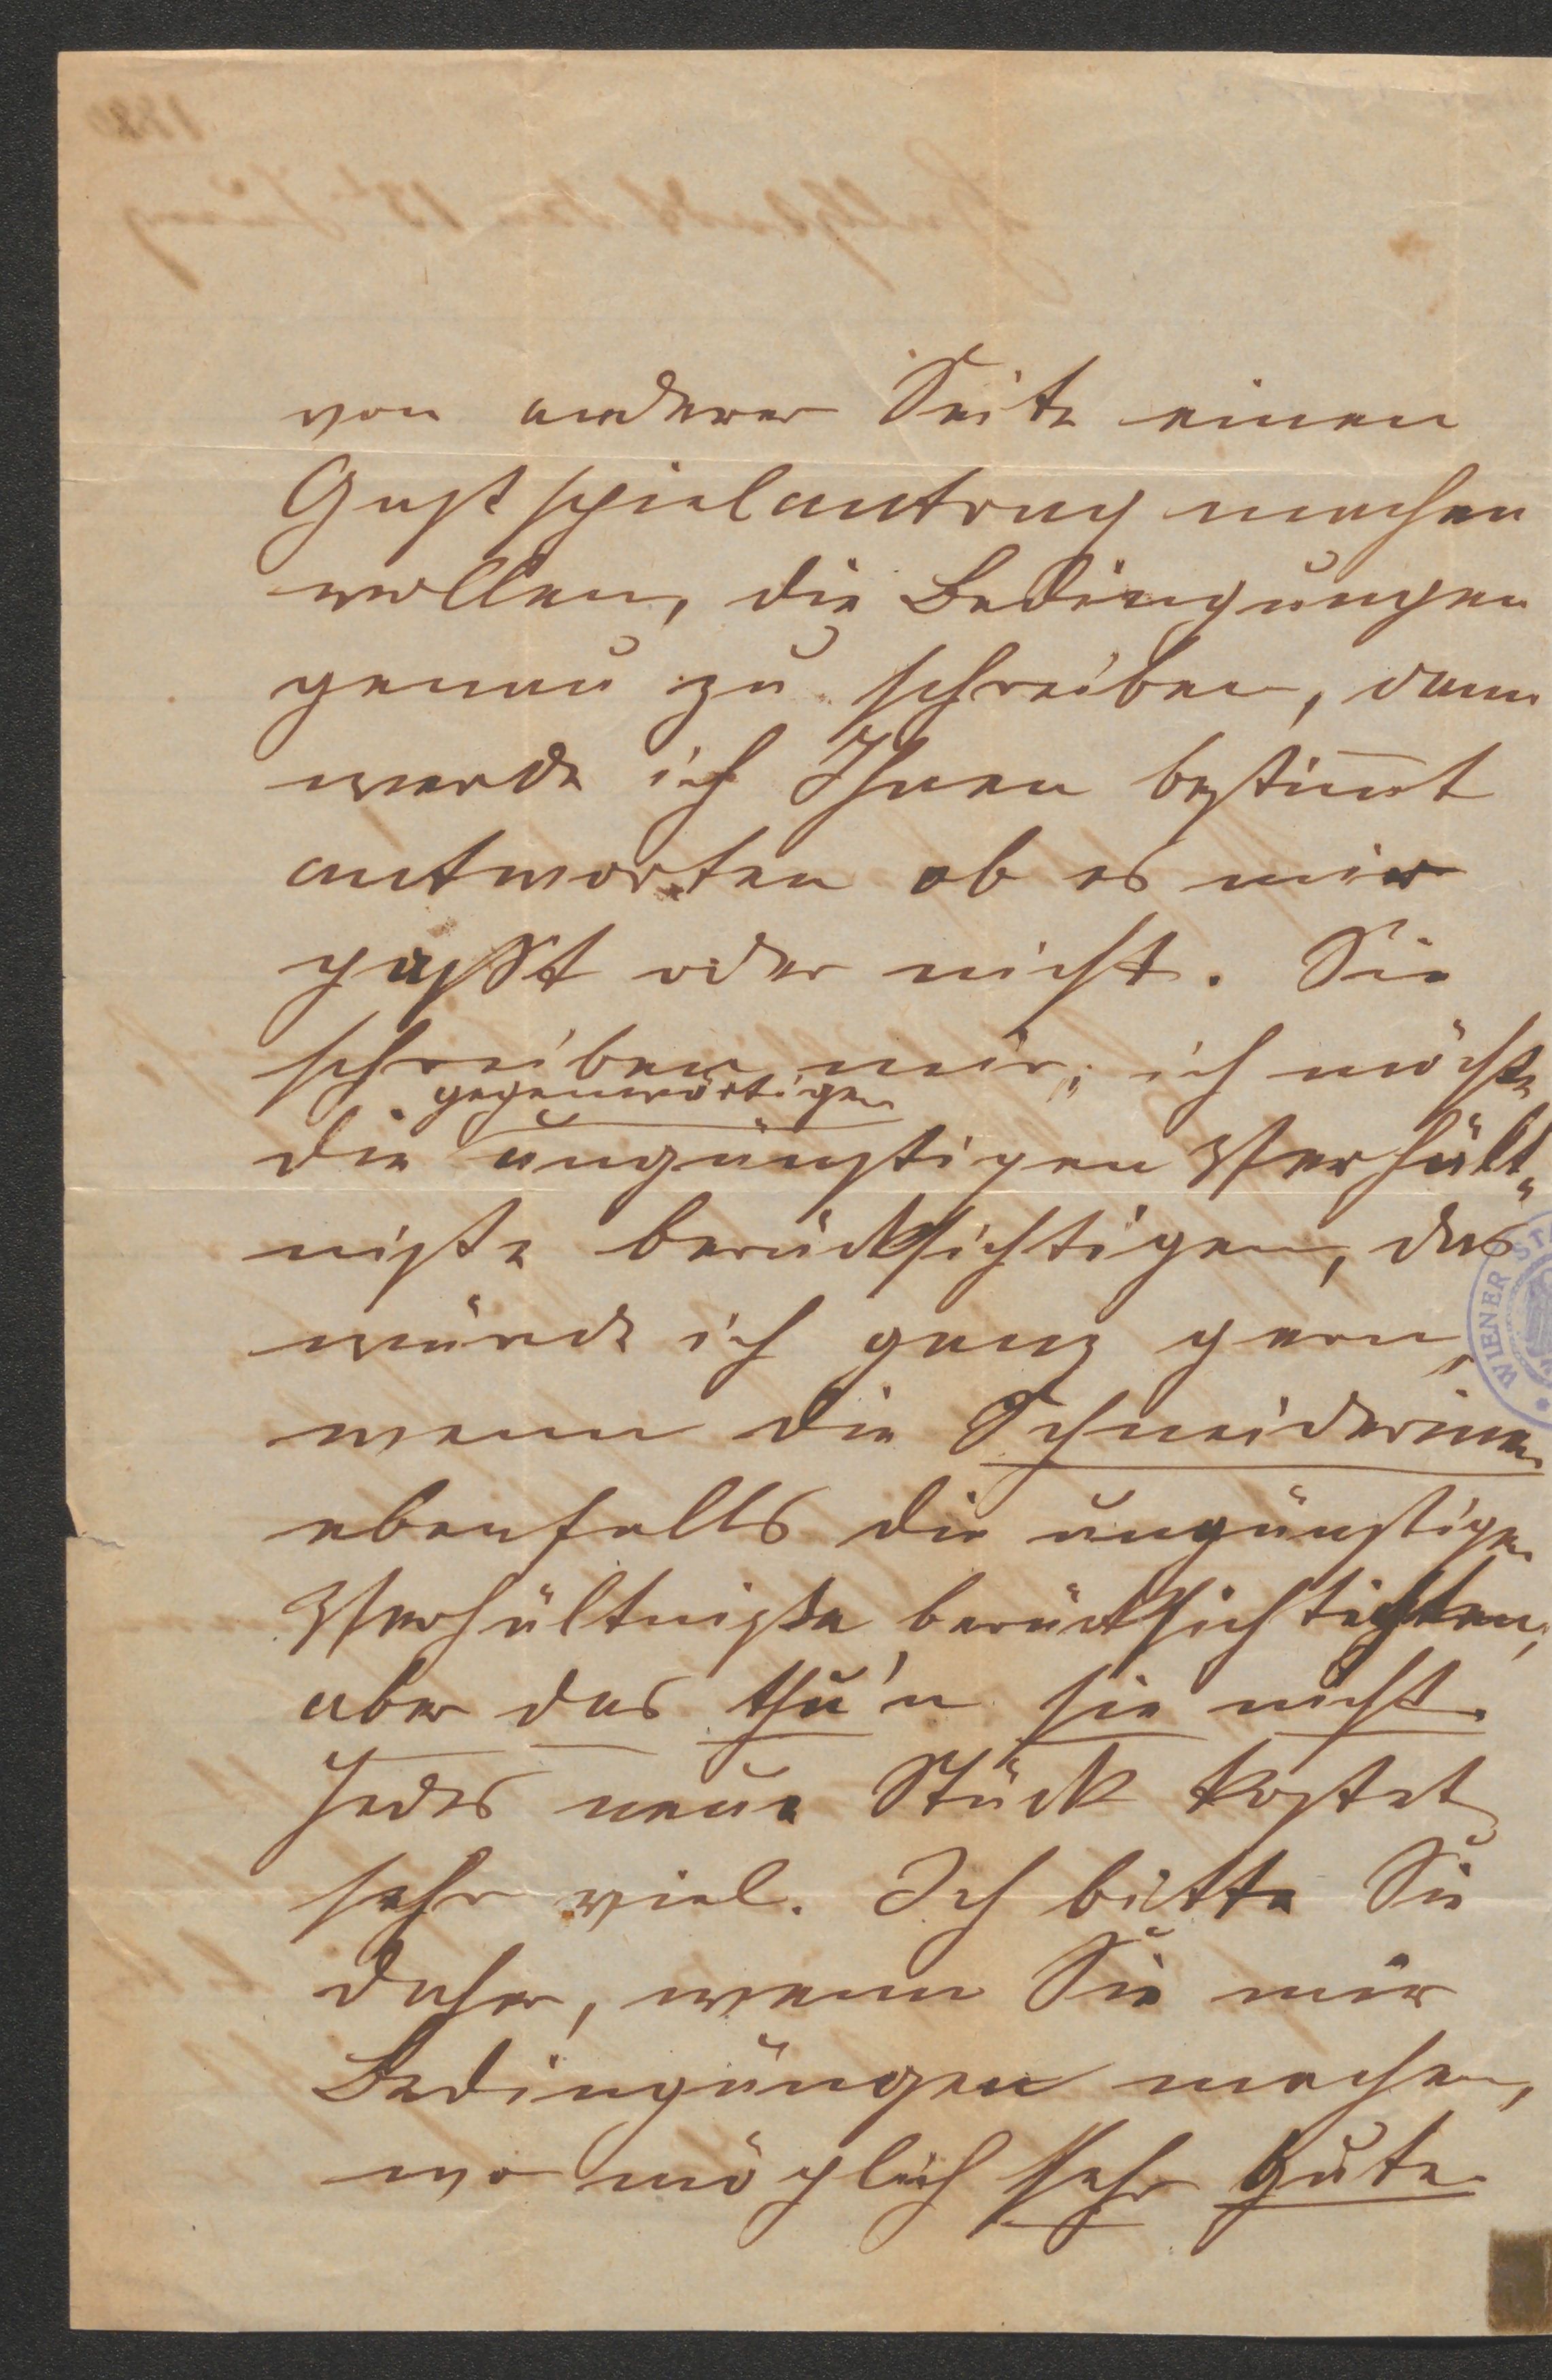 von anderer Seite einen
Gastspielantrag machen
wollen, die Bedingungen
genau zu schreiben, dann
werde ich Ihnen bestim̄t
antworten ob es mir
paßt oder nicht. Sie
schreiben mir, ich möchte
gegenwärtigen
die ungünstigen Verhält„
niße berücksichtigen, das
würde ich ganz gern,
wenn die Schneiderinen
ebenfalls die ungünstigen
Verhältniße berücksichtigten,
aber das thu'n sie nicht.
Jedes neue Stück kostet
sehr viel. Ich bitte Sie
daher, wenn Sie mir
Bedingungen machen,
wo möglich sehr gute.
WIENER ST